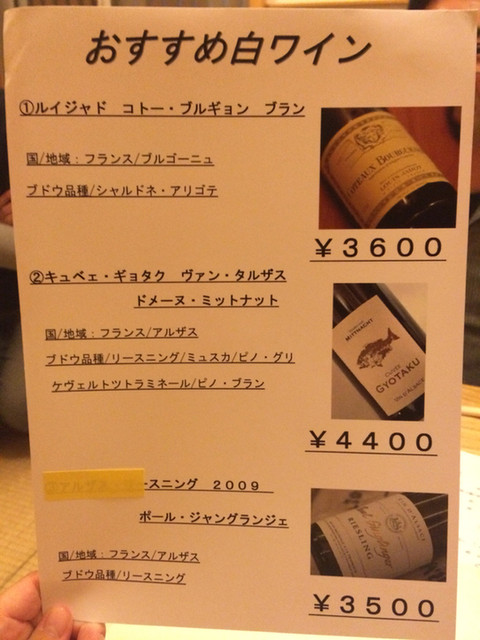 おすすめ白ワイン
①ルイジャド コトー・ブルギョン ブラン
国/地域：フランス/ブルゴーニュ
ブドウ品種/シャルドネ・アリゴテ
COTEAUX BOURGUIGNONS
￥3600
②キュベェ・ギョタク ヴァン・タルザス
ドメーヌ・ミットナット
国/地域：フランス/アルザス
ブドウ品種/リースニング/ミュスカ/ピノ・グリ
ケヴェルトットラミネール/ピノ・ブラン
MITTNACHT
CUVÉE
GYOTAKU
VIN D'ALSACE
￥4400
③アルザス・リースニング 2009
ポール・ジャングランジェ
国/地域：フランス/アルザス
ブドウ品種/リースニング
RIESLING
￥3500